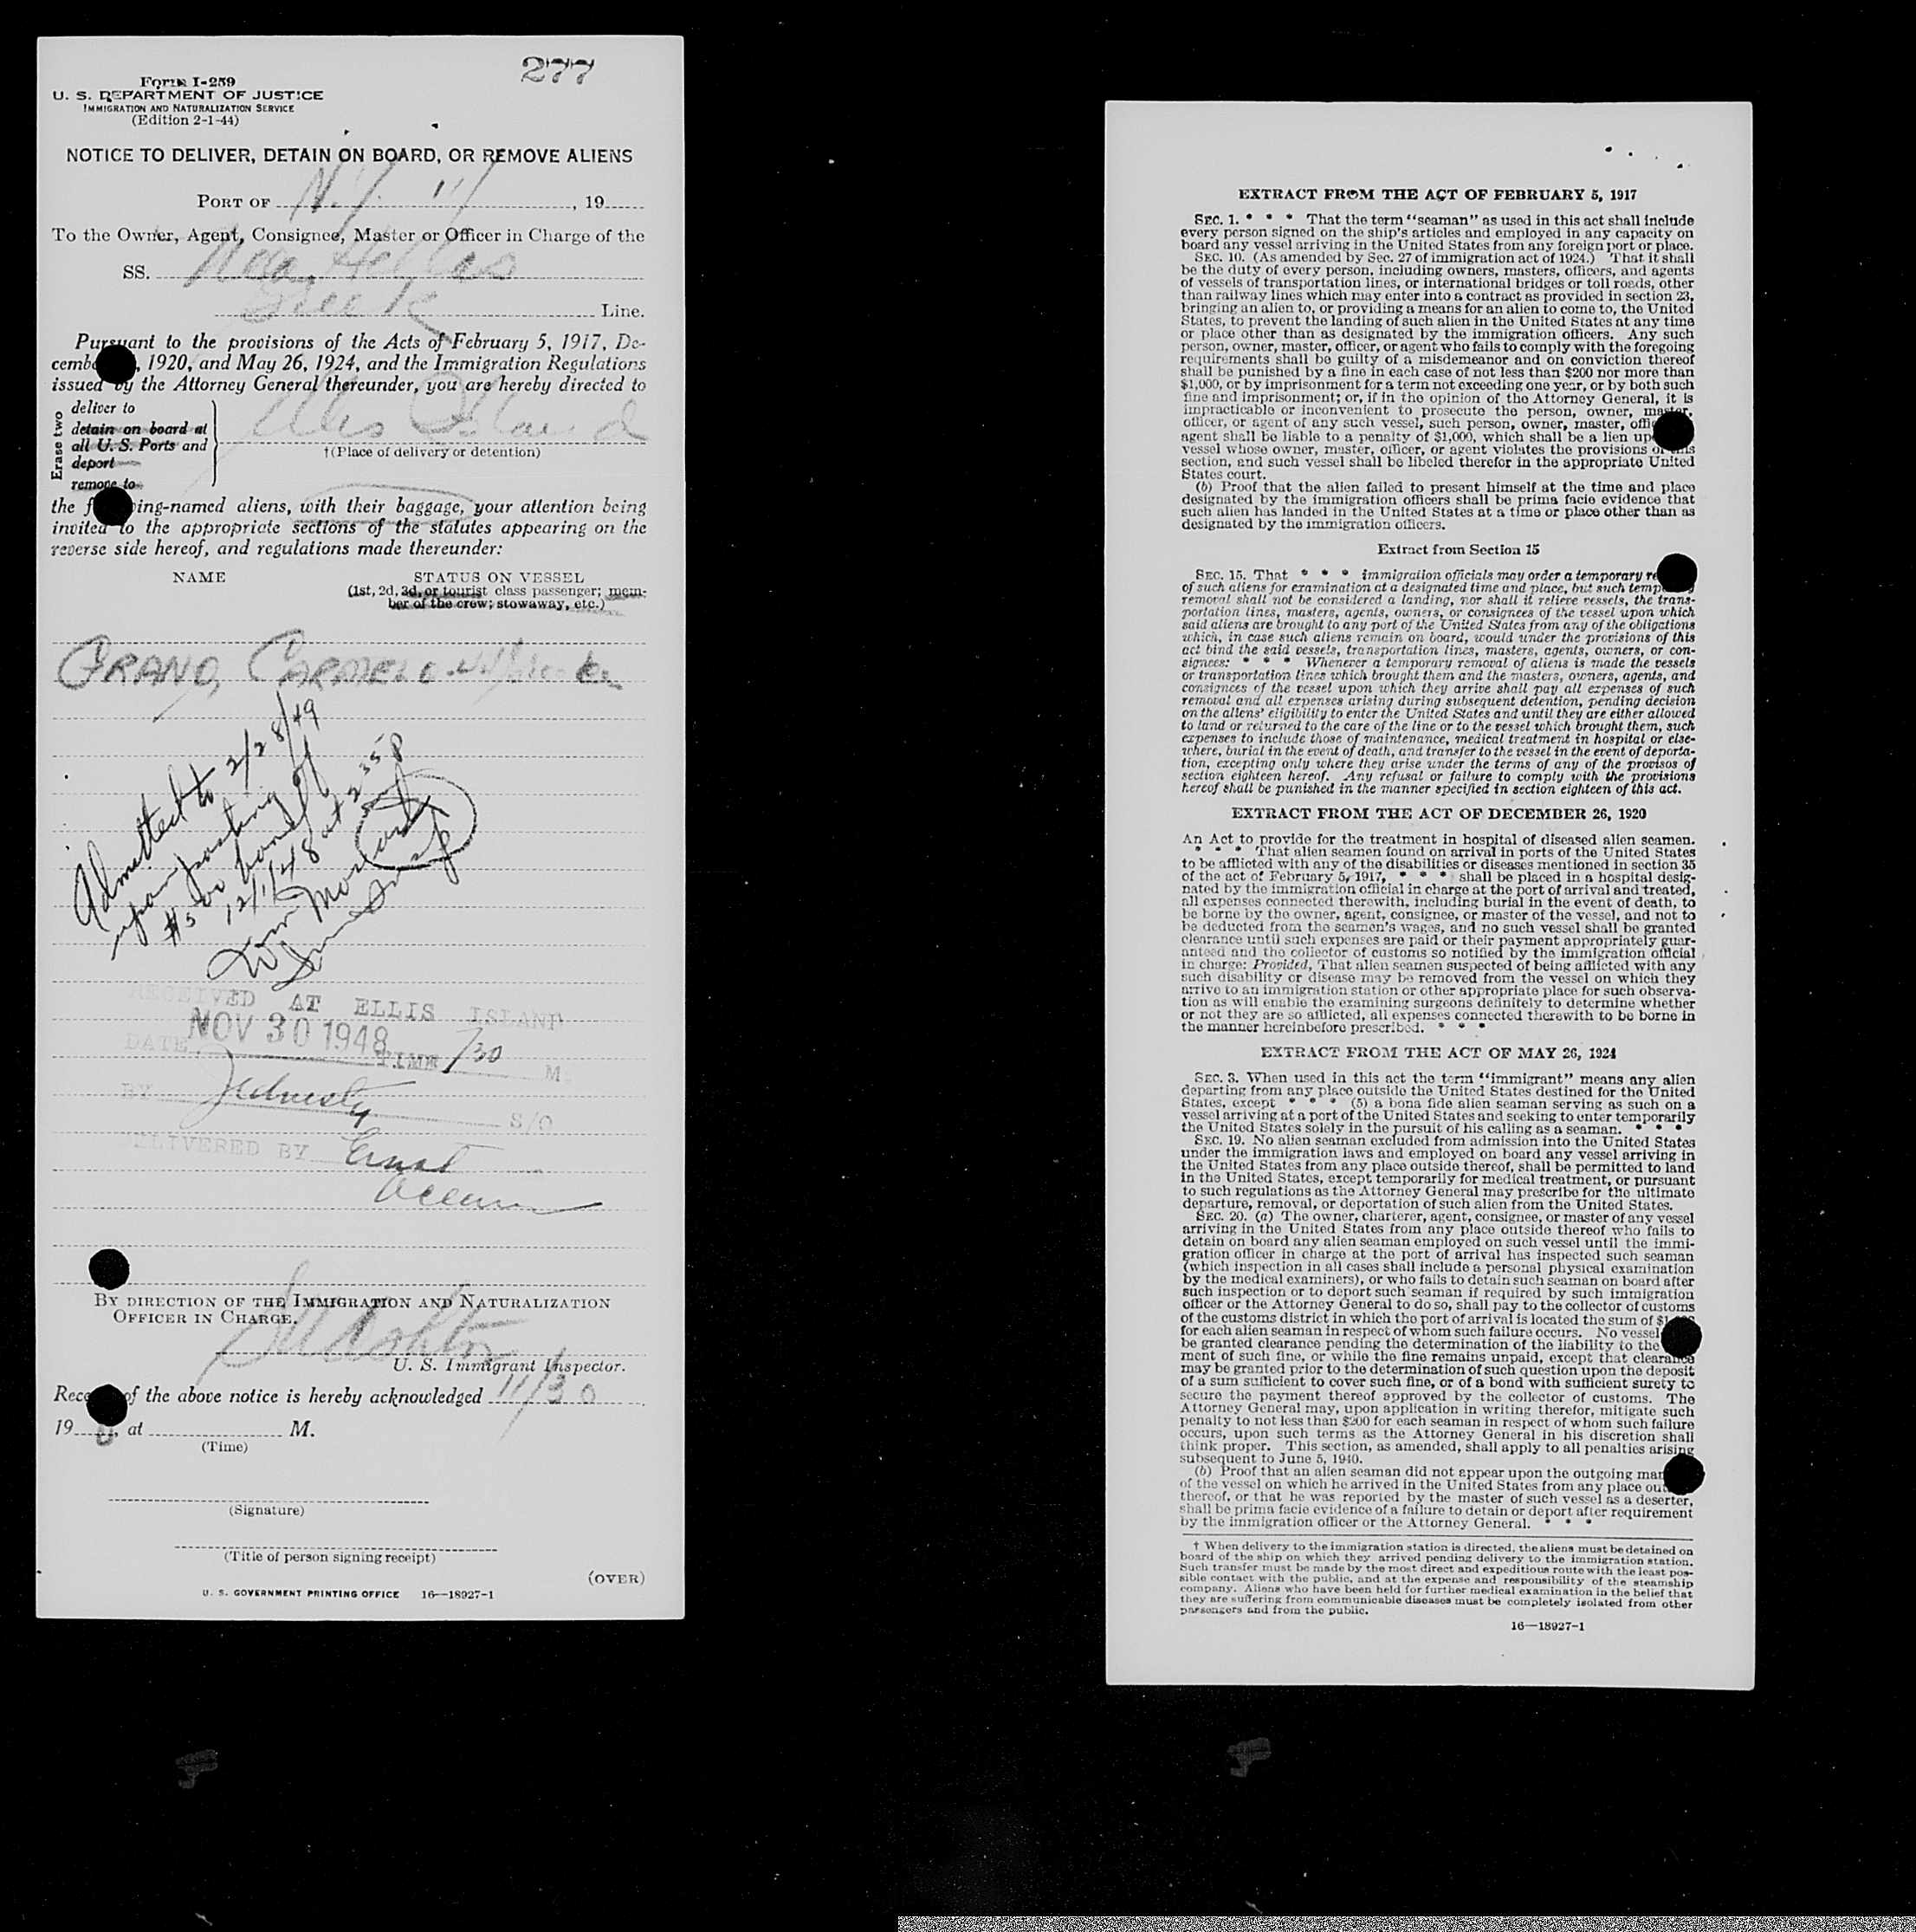 277
Form I-259
U. S. DEPARTMENT OF JUSTICE
IMMIGRATION AND NATURALIZATION SERVICE
(Edition 2-1-44)
NOTICE TO DELIVER, DETAIN ON BOARD, OR REMOVE ALIENS
PORT OF N.Y. , 19
To the Owner, Agent, Consignee, Master or Officer in Charge of the
SS. Nea Hellas
Greek Line.
Pursuant to the provisions of the Acts of February 5, 1917, De-
cemb , 1920, and May 26, 1924, and the Immigration Regulations
issued by the Attorney General thereunder, you are hereby directed to
Erase two
deliver to
detain on board at
all U. S. Ports and
deport
remove to
Ellis Island
†(Place of delivery or detention)
the f ing-named aliens, with their baggage, your attention being
invited to the appropriate sections of the statutes appearing on the
reverse side hereof, and regulations made thereunder:
NAME STATUS ON VESSEL
(1st, 2d, 3d, or tourist class passenger; mem-
ber of the crew; stowaway, etc.)
CARMELO
Admitted to 2/28/49
upon posting of
$500 bond
12/1/48 at 2 35 P
RECEIVED AT ELLIS ISLAND
DATE NOV 30 1948 TIME 730 M.
BY S/O
DELIVERED BY Ernst
BY DIRECTION OF THE IMMIGRATION AND NATURALIZATION
OFFICER IN CHARGE.
U. S. Immigrant Inspector.
Rece of the above notice is hereby acknowledged 11/30
19 8, at M.
(Time)
(Signature)
(Title of person signing receipt)
(OVER)
U. S. GOVERNMENT PRINTING OFFICE 16—18927-1
EXTRACT FROM THE ACT OF FEBRUARY 5, 1917
SEC. 1. * * * That the term "seaman" as used in this act shall include
every person signed on the ship's articles and employed in any capacity on
board any vessel arriving in the United States from any foreign port or place.
SEC. 10. (As amended by Sec. 27 of immigration act of 1924.) That it shall
be the duty of every person, including owners, masters, officers, and agents
of vessels of transportation lines, or international bridges or toll roads, other
than railway lines which may enter into a contract as provided in section 23,
bringing an alien to, or providing a means for an alien to come to, the United
States, to prevent the landing of such alien in the United States at any time
or place other than as designated by the immigration officers. Any such
person, owner, master, officer, or agent who fails to comply with the foregoing
requirements shall be guilty of a misdemeanor and on conviction thereof
shall be punished by a fine in each case of not less than $200 nor more than
$1,000, or by imprisonment for a term not exceeding one year, or by both such
fine and imprisonment; or, if in the opinion of the Attorney General, it is
impracticable or inconvenient to prosecute the person, owner, master,
officer, or agent of any such vessel, such person, owner, master, offi
agent shall be liable to a penalty of $1,000, which shall be a lien up
vessel whose owner, master, officer, or agent violates the provisions of this
section, and such vessel shall be libeled therefor in the appropriate United
States court.
(b) Proof that the alien failed to present himself at the time and place
designated by the immigration officers shall be prima facie evidence that
such alien has landed in the United States at a time or place other than as
designated by the immigration officers.
Extract from Section 15
SEC. 15. That * * * immigration officials may order a temporary re
of such aliens for examination at a designated time and place, but such temp
removal shall not be considered a landing, nor shall it relieve vessels, the trans-
portation lines, masters, agents, owners, or consignees of the vessel upon which
said aliens are brought to any port of the United States from any of the obligations
which, in case such aliens remain on board, would under the provisions of this
act bind the said vessels, transportation lines, masters, agents, owners, or con-
signees: * * * Whenever a temporary removal of aliens is made the vessels
or transportation lines which brought them and the masters, owners, agents, and
consignees of the vessel upon which they arrive shall pay all expenses of such
removal and all expenses arising during subsequent detention, pending decision
on the aliens' eligibility to enter the United States and until they are either allowed
to land or returned to the care of the line or to the vessel which brought them, such
expenses to include those of maintenance, medical treatment in hospital or else-
where, burial in the event of death, and transfer to the vessel in the event of deporta-
tion, excepting only where they arise under the terms of any of the provisos of
section eighteen hereof. Any refusal or failure to comply with the provisions
hereof shall be punished in the manner specified in section eighteen of this act.
EXTRACT FROM THE ACT OF DECEMBER 26, 1920
An Act to provide for the treatment in hospital of diseased alien seamen.
* * * That alien seamen found on arrival in ports of the United States
to be afflicted with any of the disabilities or diseases mentioned in section 35
of the act of February 5, 1917, * * * shall be placed in a hospital desig-
nated by the immigration official in charge at the port of arrival and treated,
all expenses connected therewith, including burial in the event of death, to
be borne by the owner, agent, consignee, or master of the vessel, and not to
be deducted from the seamen's wages, and no such vessel shall be granted
clearance until such expenses are paid or their payment appropriately guar-
anteed and the collector of customs so notified by the immigration official
in charge: Provided, That alien seamen suspected of being afflicted with any
such disability or disease may be removed from the vessel on which they
arrive to an immigration station or other appropriate place for such observa-
tion as will enable the examining surgeons definitely to determine whether
or not they are so afflicted, all expenses connected therewith to be borne in
the manner hereinbefore prescribed. * * *
EXTRACT FROM THE ACT OF MAY 26, 1924
SEC. 3. When used in this act the term "immigrant" means any alien
departing from any place outside the United States destined for the United
States, except * * * (5) a bona fide alien seaman serving as such on a
vessel arriving at a port of the United States and seeking to enter temporarily
the United States solely in the pursuit of his calling as a seaman. * * *
SEC. 19. No alien seaman excluded from admission into the United States
under the immigration laws and employed on board any vessel arriving in
the United States from any place outside thereof, shall be permitted to land
in the United States, except temporarily for medical treatment, or pursuant
to such regulations as the Attorney General may prescribe for the ultimate
departure, removal, or deportation of such alien from the United States.
SEC. 20. (a) The owner, charterer, agent, consignee, or master of any vessel
arriving in the United States from any place outside thereof who fails to
detain on board any alien seaman employed on such vessel until the immi-
gration officer in charge at the port of arrival has inspected such seaman
(which inspection in all cases shall include a personal physical examination
by the medical examiners), or who fails to detain such seaman on board after
such inspection or to deport such seaman if required by such immigration
officer or the Attorney General to do so, shall pay to the collector of customs
of the customs district in which the port of arrival is located the sum of $1
for each alien seaman in respect of whom such failure occurs. No vessel
be granted clearance pending the determination of the liability to the
ment of such fine, or while the fine remains unpaid, except that clearance
may be granted prior to the determination of such question upon the deposit
of a sum sufficient to cover such fine, or of a bond with sufficient surety to
secure the payment thereof approved by the collector of customs. The
Attorney General may, upon application in writing therefor, mitigate such
penalty to not less than $200 for each seaman in respect of whom such failure
occurs, upon such terms as the Attorney General in his discretion shall
think proper. This section, as amended, shall apply to all penalties arising
subsequent to June 5, 1940.
(b) Proof that an alien seaman did not appear upon the outgoing man
of the vessel on which he arrived in the United States from any place out
thereof, or that he was reported by the master of such vessel as a deserter,
shall be prima facie evidence of a failure to detain or deport after requirement
by the immigration officer or the Attorney General. * * *
† When delivery to the immigration station is directed, the aliens must be detained on
board of the ship on which they arrived pending delivery to the immigration station.
Such transfer must be made by the most direct and expeditious route with the least pos-
sible contact with the public, and at the expense and responsibility of the steamship
company. Aliens who have been held for further medical examination in the belief that
they are suffering from communicable diseases must be completely isolated from other
passengers and from the public.
16—18927-1